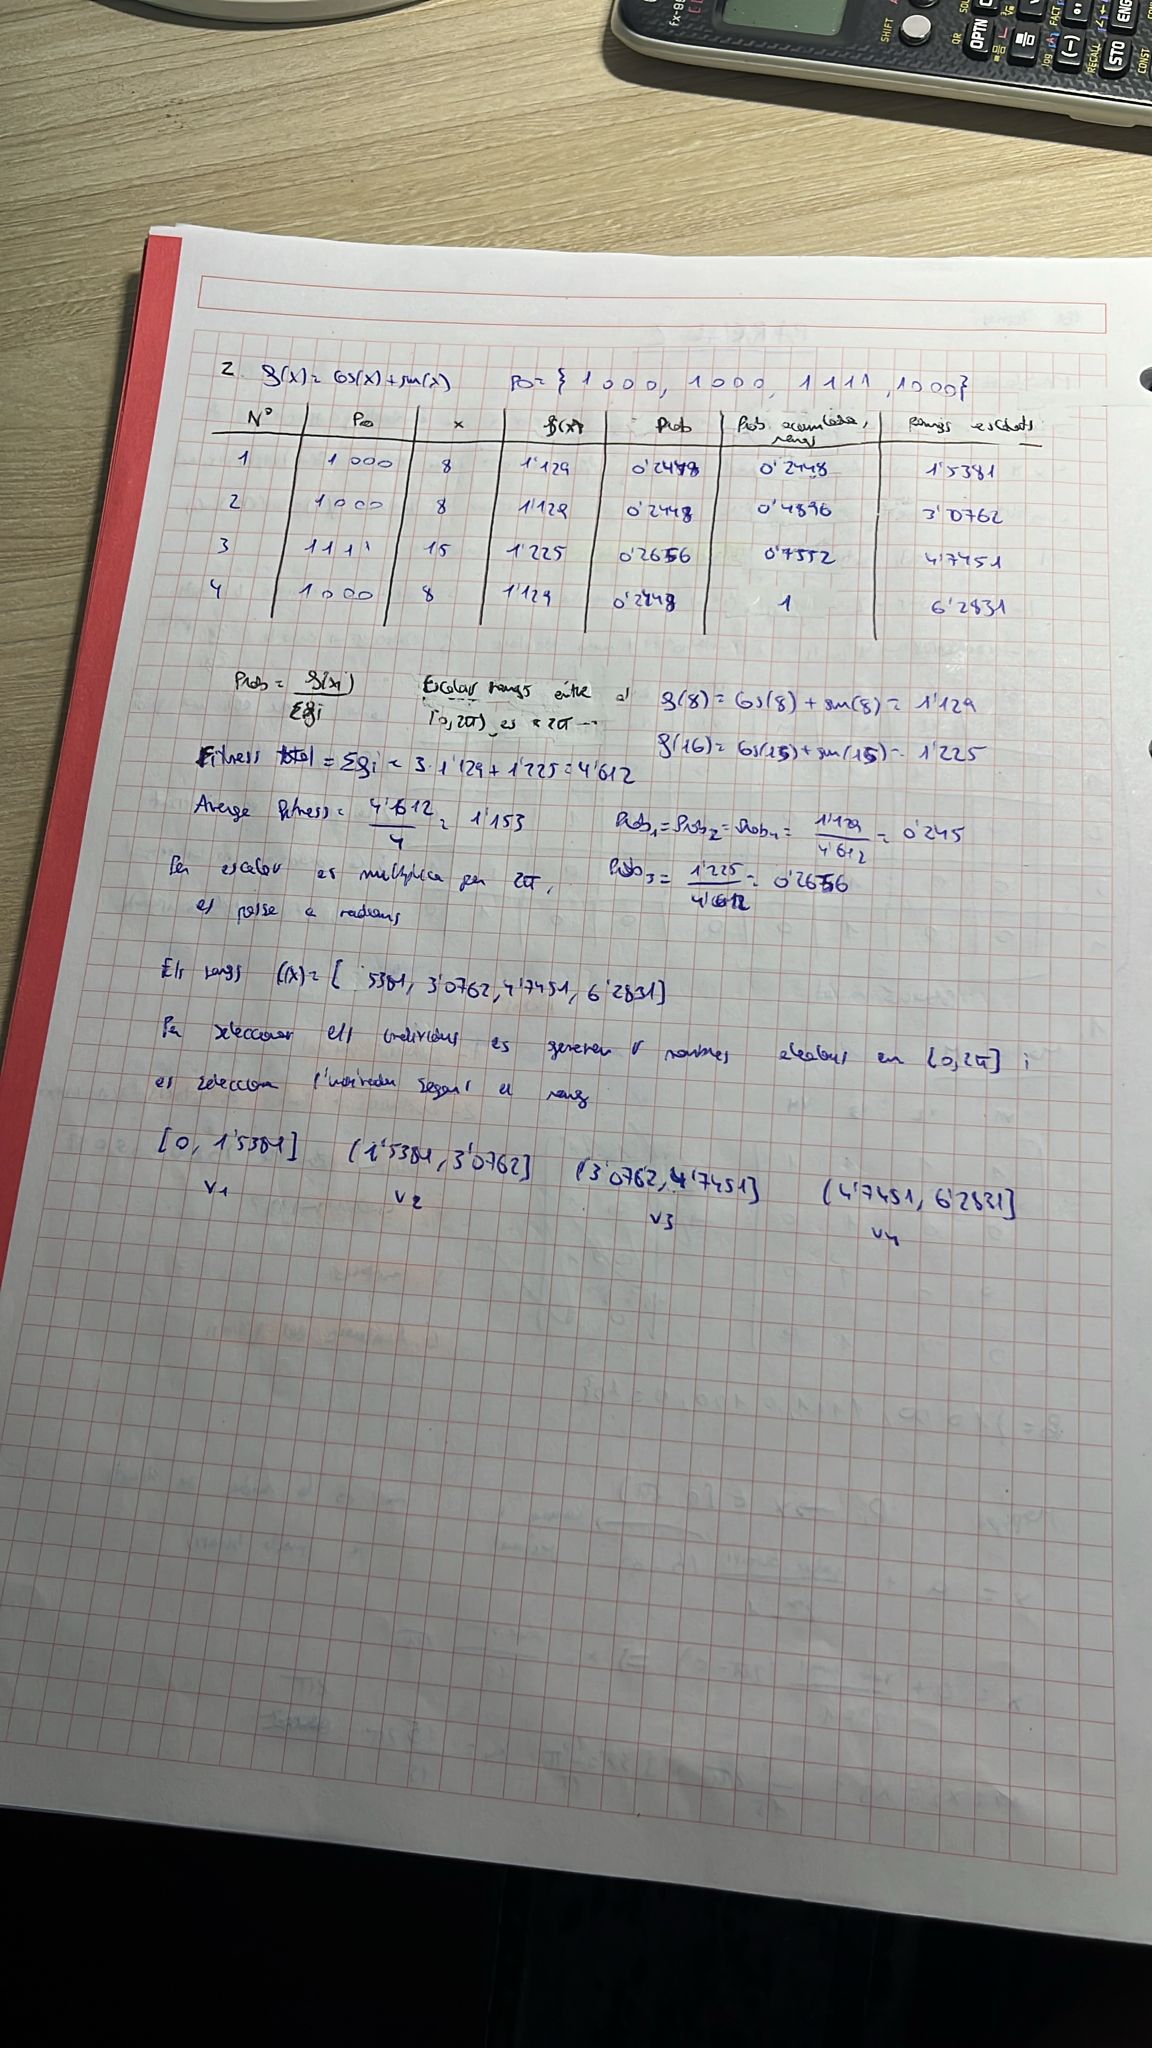 fx-99
SHIFT
QR
OPTN
FACT
log
(-)
RECALL
STO
ENG
CONST
2. f(x)= cos(x)+sin(x) Po= { 1000, 1000, 1111, 1000}
Nº Po x f(x) Prob Prob acumulada, rangs Rangs escalats
1 1000 8 1'129 0'2448 0'2448 1'5381
2 1000 8 1'129 0'2448 0'4896 3'0762
3 1111 15 1'225 0'2656 0'7552 4'7451
4 1000 8 1'129 0'2448 1 6'2831
Prob = f(xi) / Σfi Escalar rangs entre
[0,2π) es × 2π
f(8)= cos(8)+sin(8)= 1'129
f(16)= cos(15)+sin(15)= 1'225
Fitness total = Σfi = 3·1'129+1'225=4'612
Average fitness= 4'612 / 4 = 1'153
Prob1=Prob2=Prob4= 1'129 / 4'612 = 0'245
Per escalar es multiplica per 2π,
es passa a radians
Prob3= 1'225 / 4'612 = 0'2656
Els rangs = [ 5381, 3'0762, 4'7451, 6'2831]
Per seleccionar els individus es generen 4 nombres aleatoris en [0,2π] i
es selecciona l'individu segons el rang
[0, 1'5381] (1'5381, 3'0762] (3'0762, 4'7451] (4'7451, 6'2831]
v1 v2 v3 v4